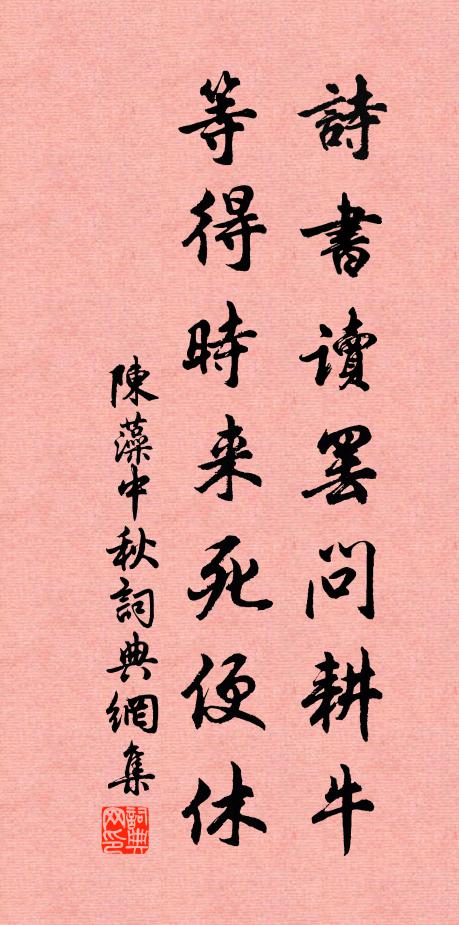 詩書讀罷問耕牛
等得時来死便休
陳藻中秋詞典網集
詞典网印